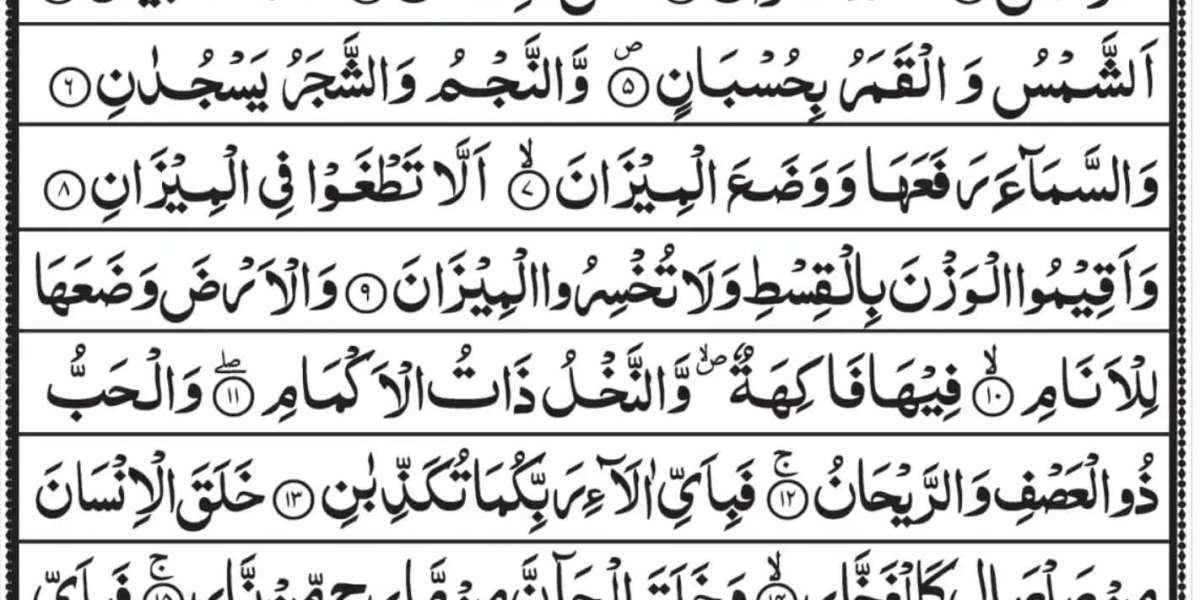 اَلشَّمْسُ وَ الْقَمَرُ بِحُسْبَانٍ ۝۵ۖ وَّالنَّجْمُ وَالشَّجَرُ يَسْجُدٰنِ ۝۶
وَالسَّمَآءَ رَفَعَهَا وَوَضَعَ الْمِيْزَانَ ۝۷ۙ اَلَّا تَطْغَوْا فِى الْمِيْزَانِ ۝۸
وَاَقِيْمُوا الْوَزْنَ بِالْقِسْطِ وَلَا تُخْسِرُوا الْمِيْزَانَ ۝۹ وَالْاَرْضَ وَضَعَهَا
لِلْاَنَامِ ۝۱۰ۙ فِيْهَا فَاكِهَةٌ ۙص وَّالنَّخْلُ ذَاتُ الْاَكْمَامِ ۝۱۱ۖ وَالْحَبُّ
ذُو الْعَصْفِ وَالرَّيْحَانُ ۝۱۲ۚ فَبِاَىِّ اٰلَآءِ رَبِّكُمَا تُكَذِّبٰنِ ۝۱۳ خَلَقَ الْاِنْسَانَ